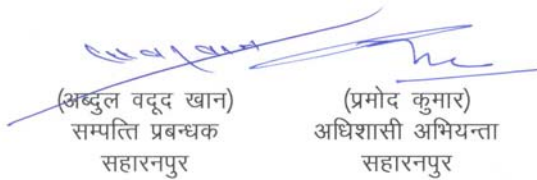 (अब्दुल वदूद खान)
सम्पत्ति प्रबन्धक
सहारनपुर
(प्रमोद कुमार)
अधिशासी अभियन्ता
सहारनपुर